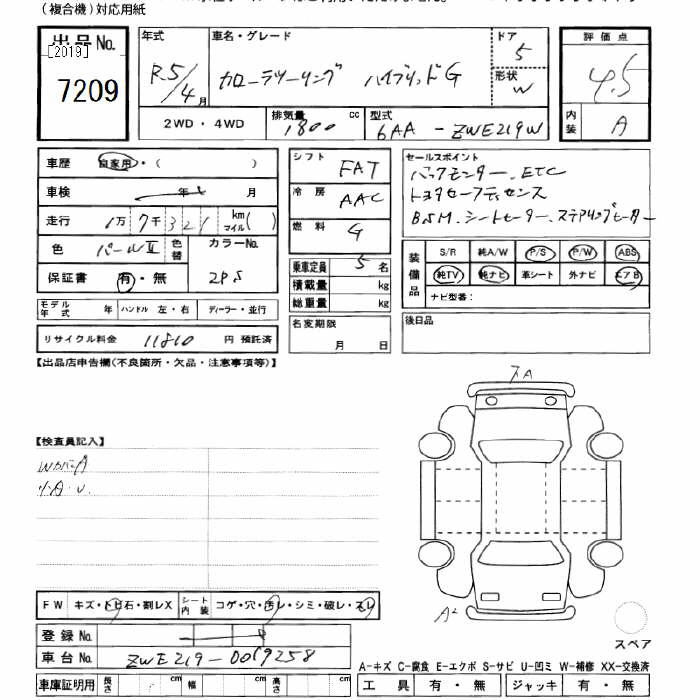 (複合機)対応用紙
出品No.
[2019]
7209
年式
R.5/4月
車名・グレード
カローラツーリング ハイブリッドG
ドア
5
形状
W
評価点
4.5
内装
A
2WD・4WD
排気量
1800 cc
型式
6AA-ZWE219W
車歴 自家用・( )
車検 年 月
走行 1万7千321 km マイル( )
色 パールⅡ 色替 カラーNo.
保証書 有・無 2PS
モデル年式 年 ハンドル 左・右 ディーラー・並行
リサイクル料金 11810 円 預託済
シフト FAT
冷房 AAC
燃料 G
乗車定員 5 名
積載量 kg
総重量 kg
名変期限
月 日
セールスポイント
バックモニター、ETC
トヨタセーフティセンス
BSM.シートヒーター、ステアリングヒーター
装備品
S/R 純A/W P/S P/W ABS
純TV 純ナビ 革シート 外ナビ エアB
ナビ型番:
後日品
【出品店申告欄(不良箇所・欠品・注意事項等)】
【検査員記入】
A
A²
FW キズ・トビ石・割レX シート内装 コゲ・穴・汚レ・シミ・破レ・スレ
登録No.
車台No. ZWE219-0019258
スペア
A-キズ C-腐食 E-エクボ S-サビ U-凹ミ W-補修 XX-交換済
車庫証明用 長さ cm 幅 cm 高さ cm
工具 有・無 ジャッキ 有・無